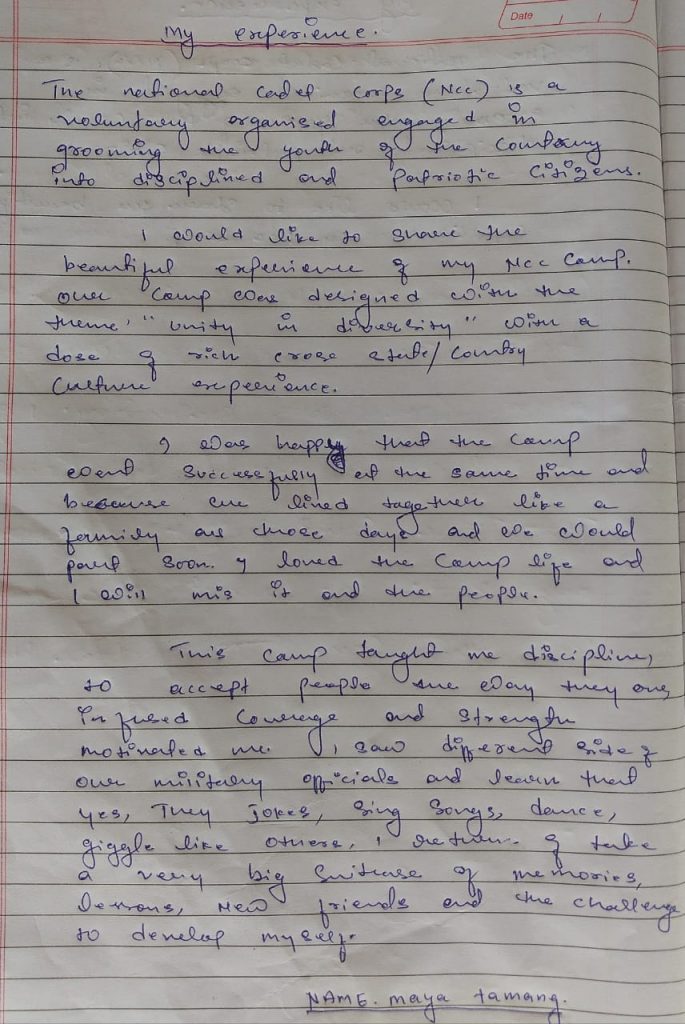 Date
My experience.
The national cadet corps (Ncc) is a
voluntary organised engaged in
grooming the youth of the country
into disciplined and patriotic citizens.
I would like to share the
beautiful experience of my Ncc camp.
our camp was designed with the
theme "unity in diversity" with a
dose of rich cross state/country
culture experience.
I was happy that the camp
went successfully at the same time and
because we lived together like a
family all those days and we would
part soon. I loved the camp life and
I will mis it and the people.
This camp taught me discipline,
to accept people the way they are,
infused courage and strength
motivated me. I saw different side of
our military officials and learn that
yes, They jokes, sing songs, dance,
giggle like others, I return. I take
a very big suitcase of memories,
lessons, new friends and the challenge
to develop myself.
NAME. maya tamang.